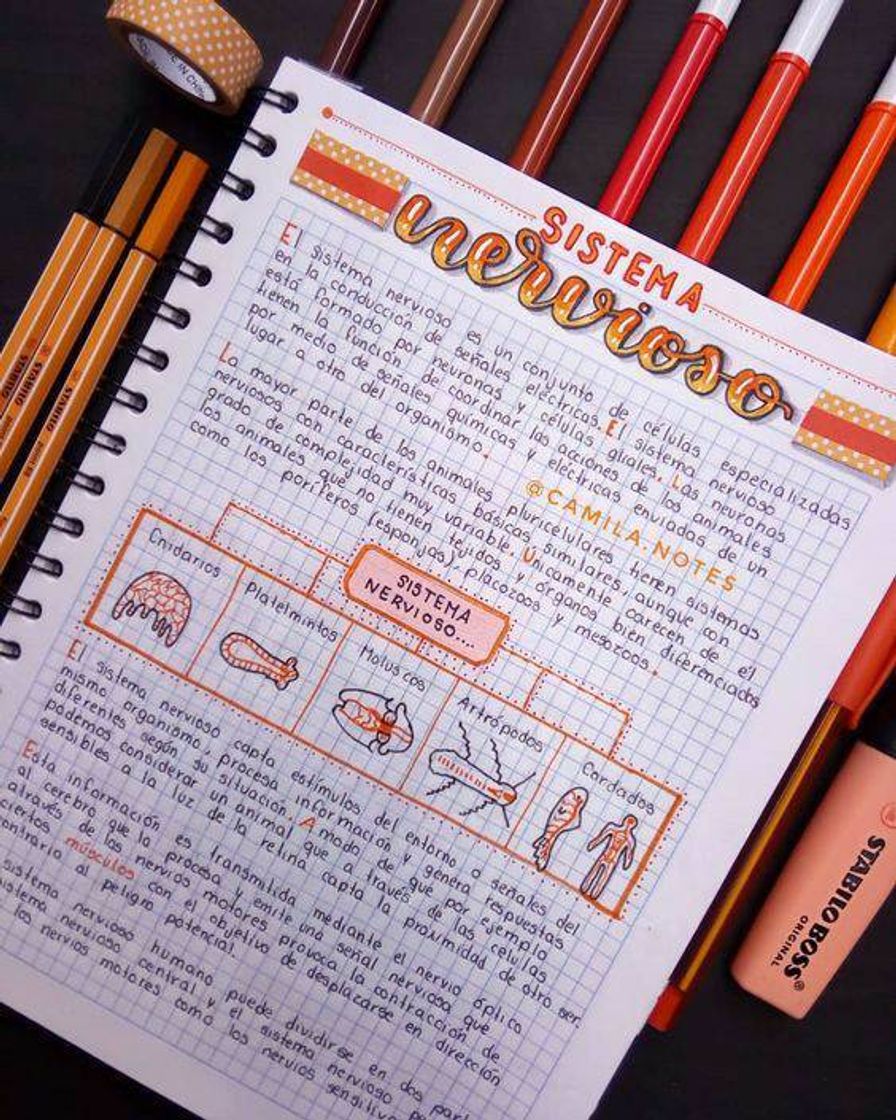 MADE IN CHINA
SISTEMA
nervioso
El sistema nervioso es un conjunto de células especializadas
en la conducción de señales eléctricas. El sistema nervioso
está formado por neuronas y células gliales. Las neuronas
tienen la función de coordinar las acciones de los animales
por medio de señales químicas y eléctricas enviadas de un
lugar a otro del organismo.
@CAMILA.NOTES
La mayor parte de los animales pluricelulares tienen sistemas
nerviosos con características básicas similares, aunque con
grado de complejidad muy variable. Únicamente carecen de él
los animales que no tienen tejidos y órganos bien diferenciados
como los poríferos (esponjas), placozoos y mesozoos.
SISTEMA
NERVIOSO...
Cnidarios
Platelmintos
Moluscos
Artrópodos
Cordados
El sistema nervioso capta estímulos del entorno o señales del
mismo organismo, procesa información y genera respuestas
diferentes según su situación. A modo de que por ejemplo
podemos considerar un animal que a través de las células
sensibles a la luz de la retina capta la proximidad de otro ser.
Esta información es transmitida mediante el nervio óptico
al cerebro que la procesa y emite una señal nerviosa que
através de los nervios motores provoca la contracción de
ciertos músculos con el objetivo de desplazarse en dirección
contraria al peligro potencial.
sistema nervioso humano puede dividirse en dos
sistema nervioso central y el sistema nervioso
los nervios motores como los nervios
STABILO
STABILO
STABILO
STABILO BOSS®
ORIGINAL